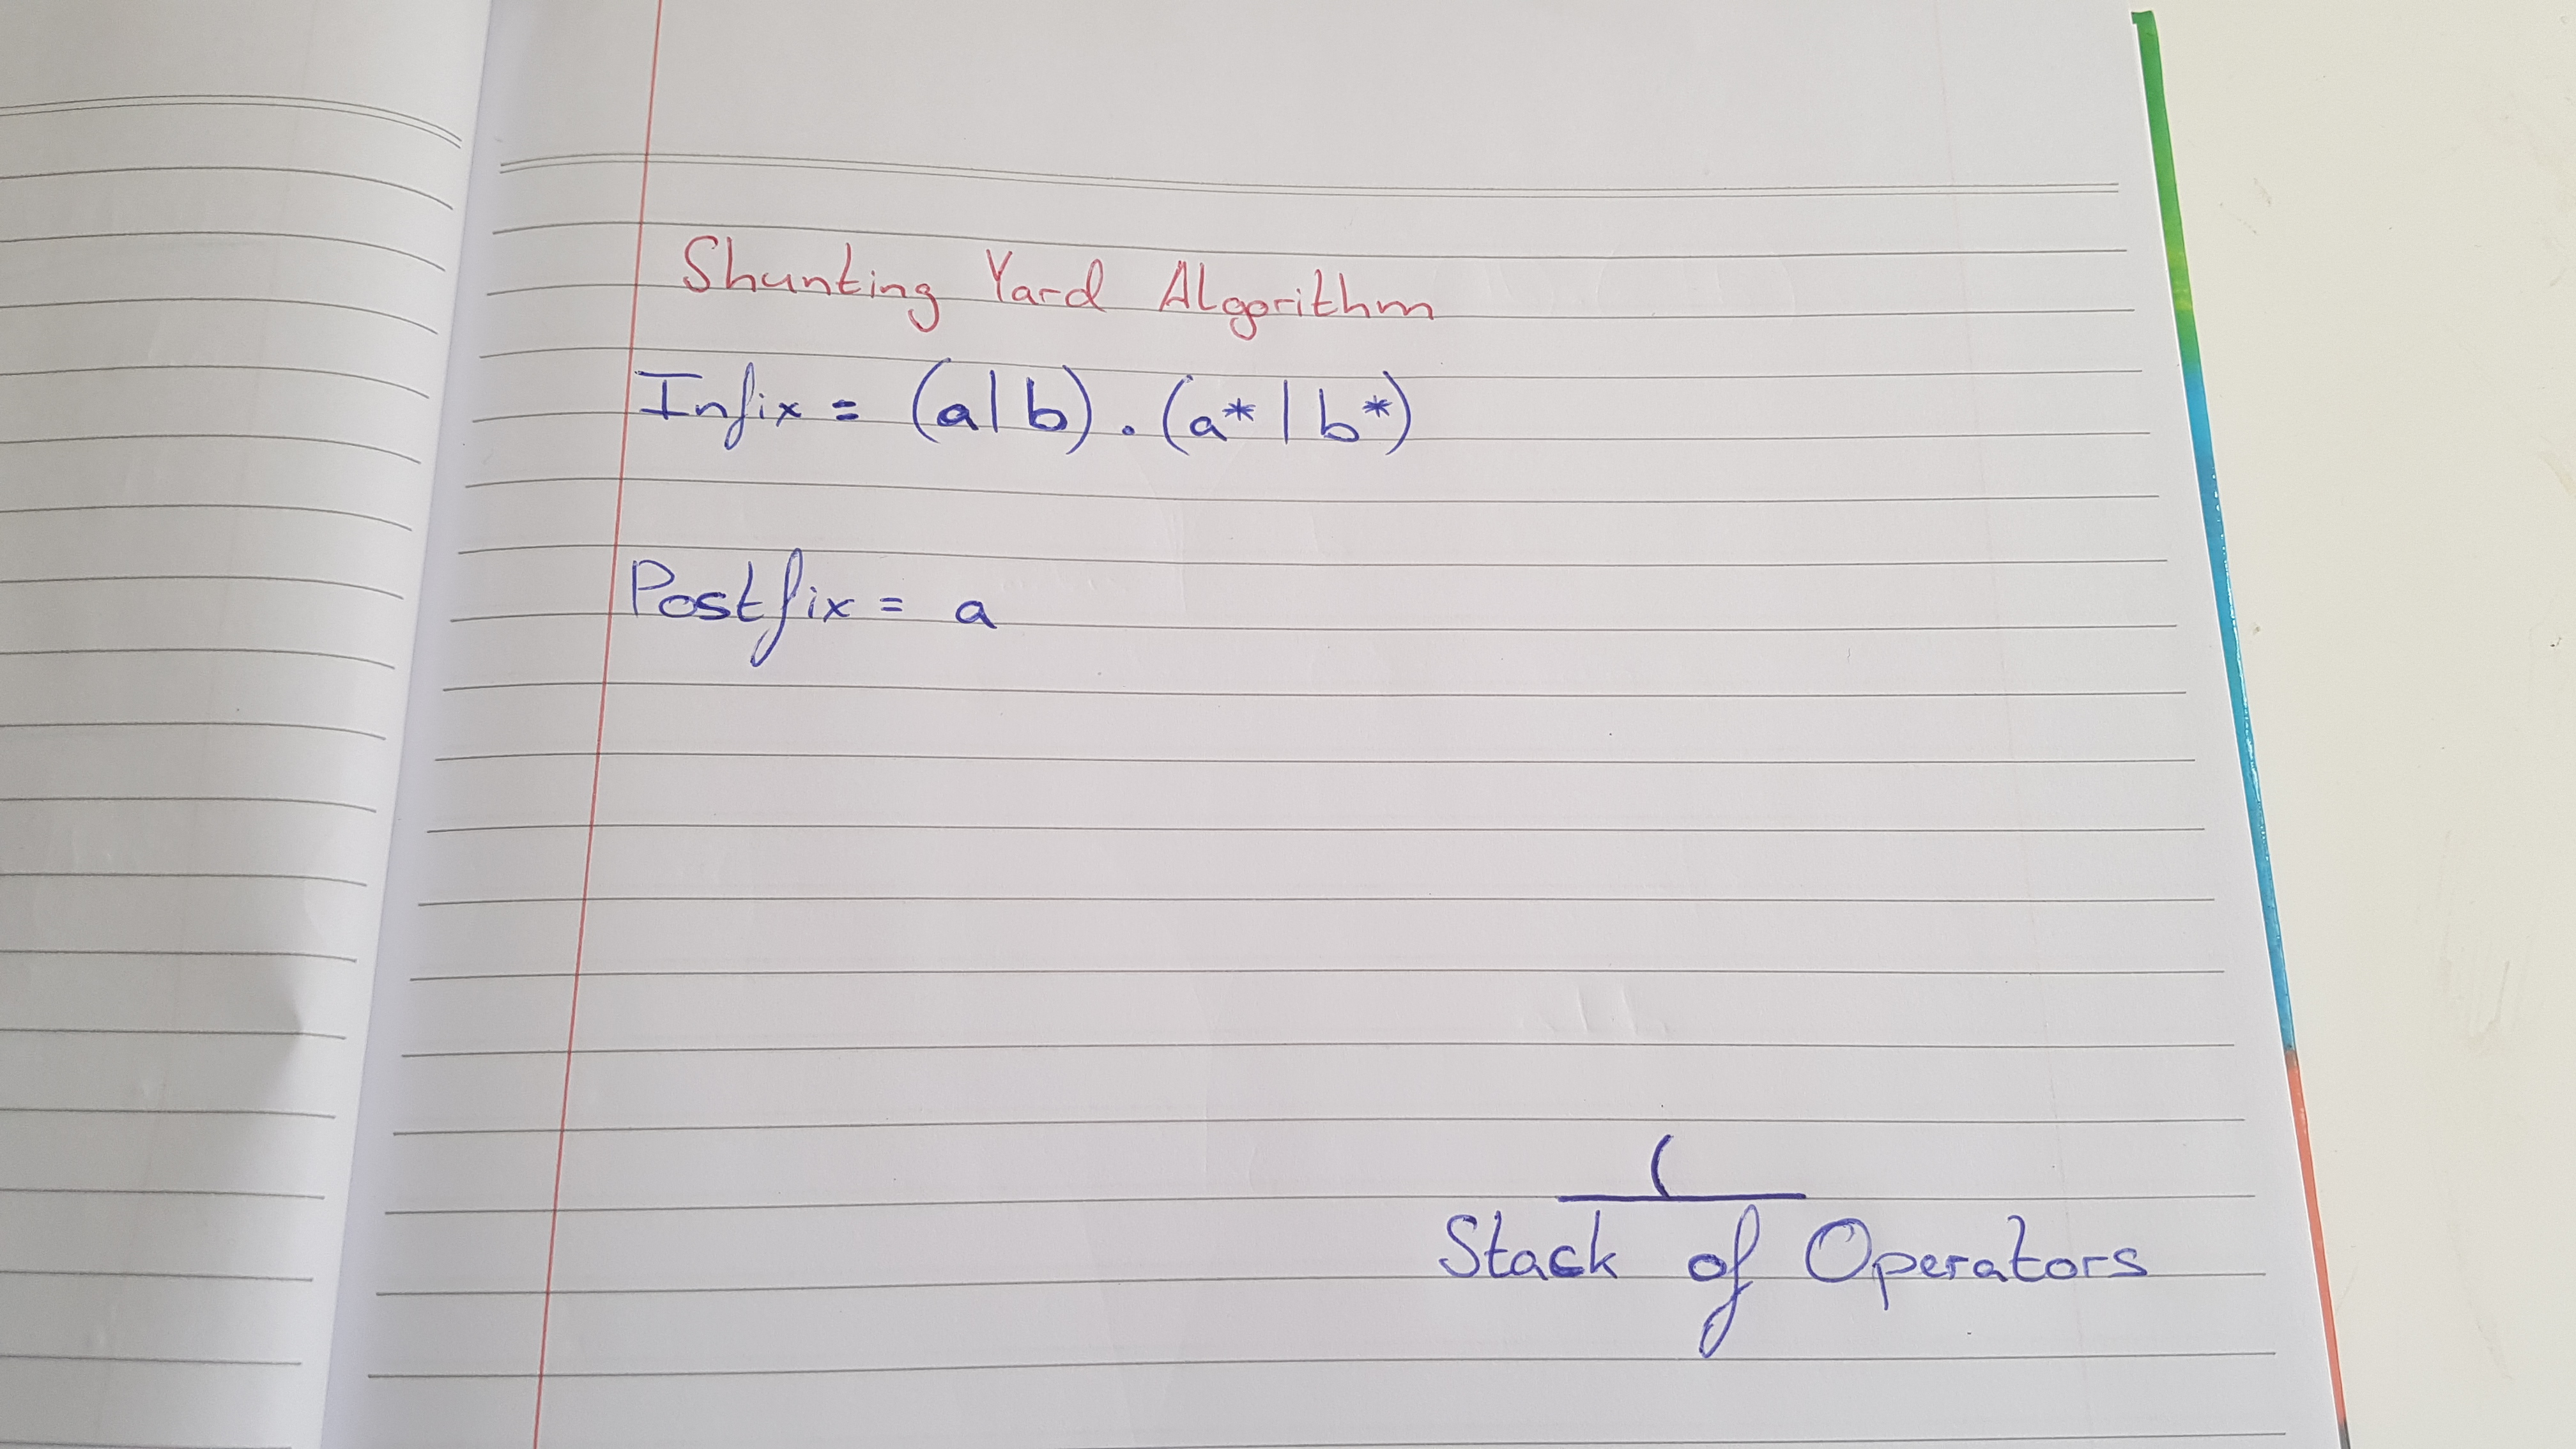 Shunting Yard Algorithm
Infix = (a|b).(a*|b*)
Postfix = a
(
Stack of Operators